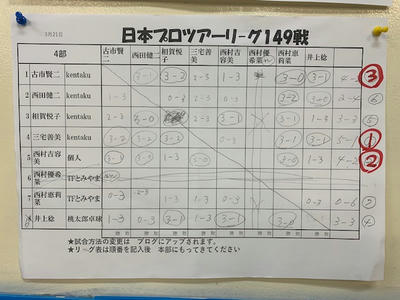 3月21日
日本プロツアーリーグ149戦
4部 古市賢二 西田健二 相賀悦子 三宅善美 西村吉容美 西村優希菜 西村恵莉菜 井上稔
1 古市賢二 kentaku 3-1 3-2 2-3 1-3 3-0 3-1 ③
2 西田健二 kentaku 1-3 0-3 2-3 3-2 0-3 2-4 ⑥
3 相賀悦子 kentaku 2-3 3-0 2-3 3-1 3-1 1-3 ⑤
4 三宅善美 kentaku 3-2 3-2 3-2 3-1 3-1 5-1 ①
5 西村吉容美 個人 3-1 3-0 1-3 3-0 1-3 ②
6 西村優希菜 TFとみやま
7 西村恵莉菜 TFとみやま 0-3 2-3 1-3 1-3 0-3 0-3 0-6 ⑦
8 井上稔 桃太郎卓球 1-3 0-3 3-1 3-0 3-3 ④
★試合方法の変更は ブログにアップされます。
★リーグ表は順番を記入後 本部にもってきてください